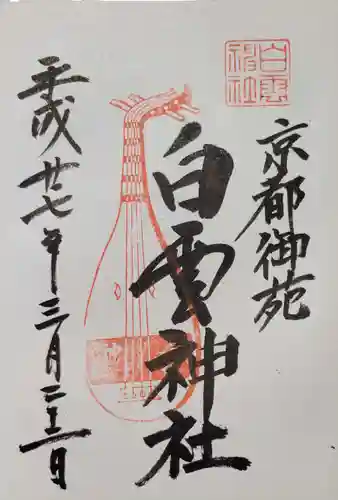 京都御苑
白雲
神社
白雲神社
平成廿七年三月二十二日